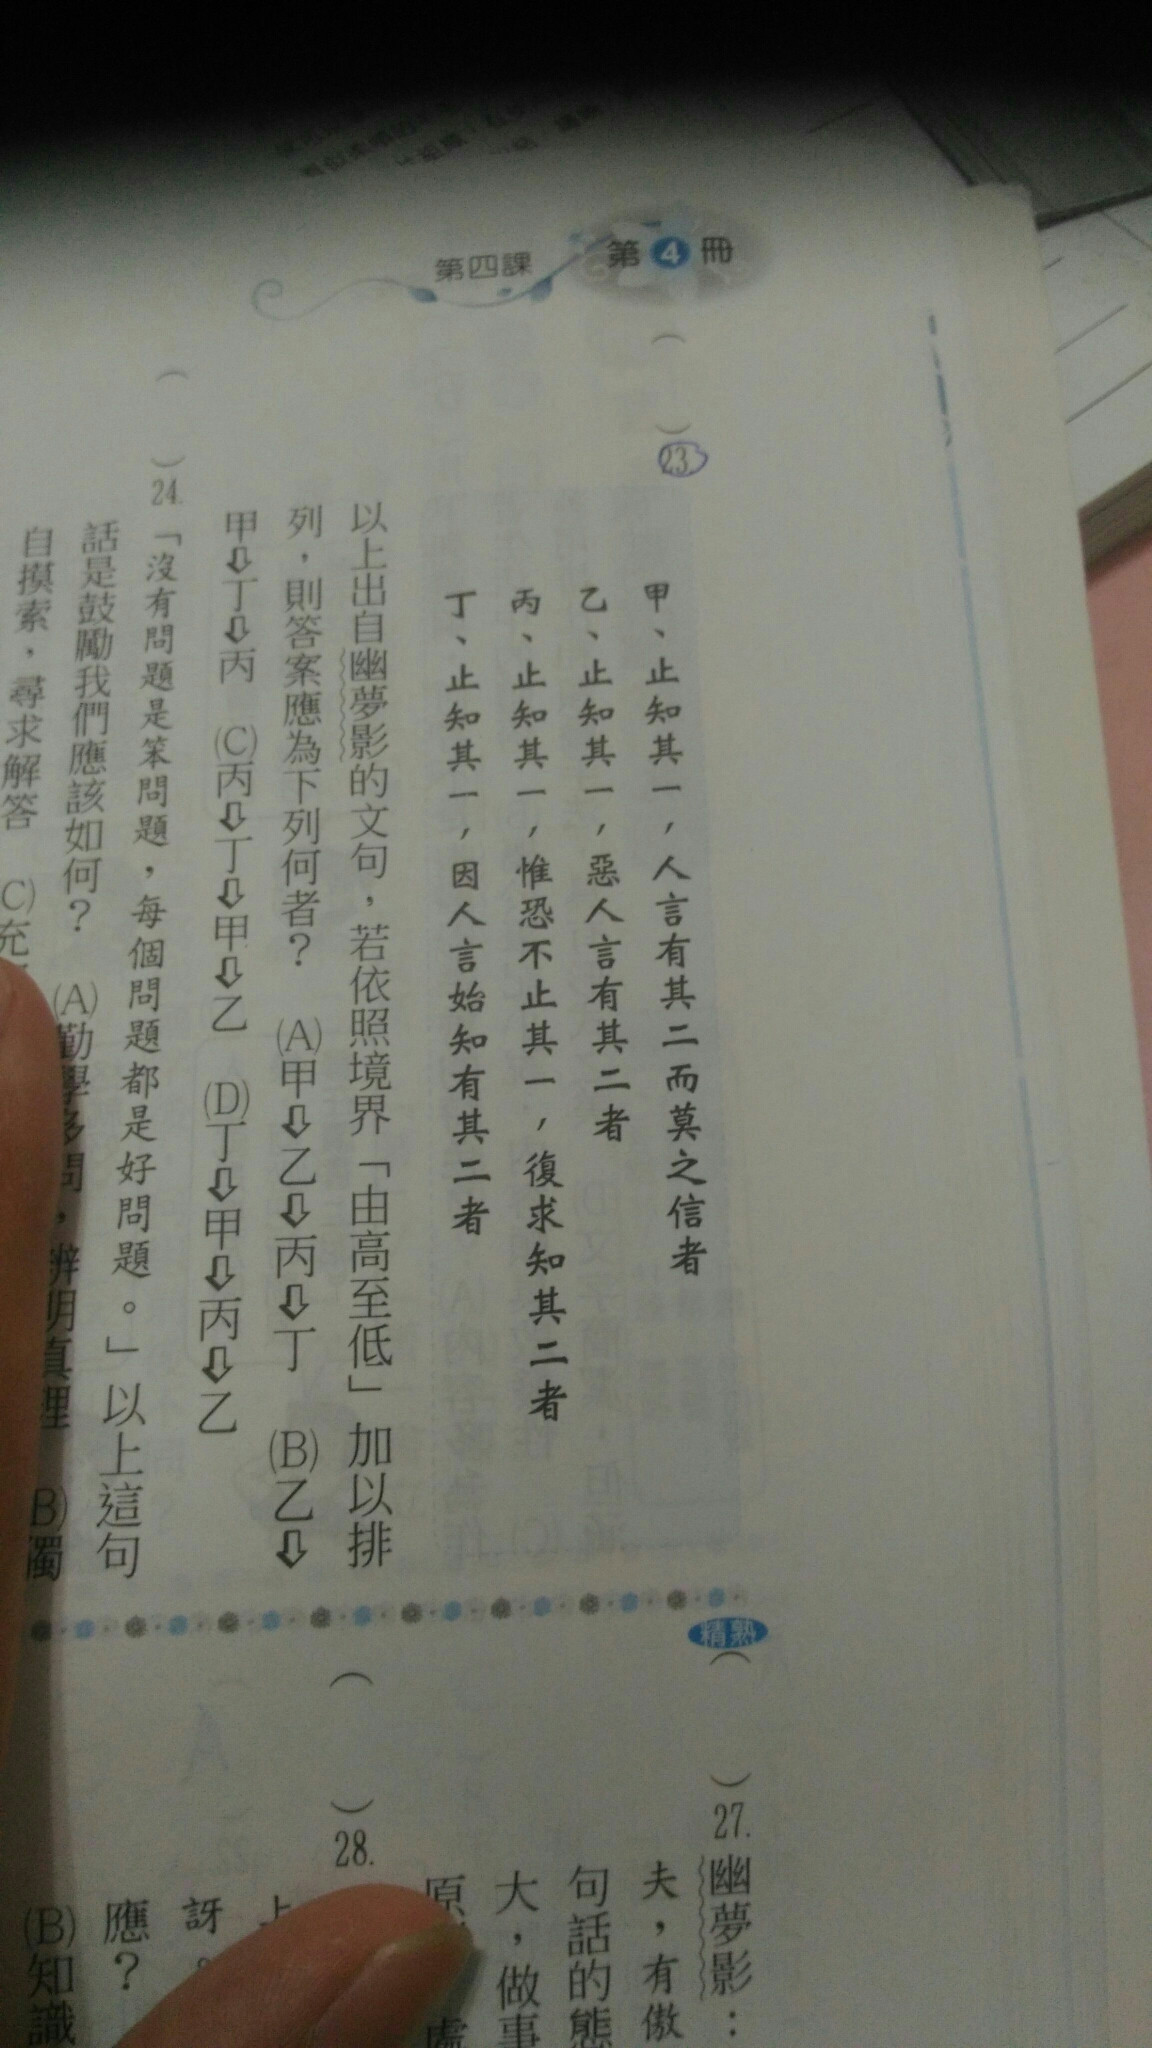 第四課 第4冊
( )23.
甲、止知其一,人言有其二而莫之信者
乙、止知其一,惡人言有其二者
丙、止知其一,惟恐不止其一,復求知其二者
丁、止知其一,因人言始知有其二者
以上出自幽夢影的文句,若依照境界「由高至低」加以排
列,則答案應為下列何者? (A)甲⇩乙⇩丙⇩丁 (B)乙⇩
甲⇩丁⇩丙 (C)丙⇩丁⇩甲⇩乙 (D)丁⇩甲⇩丙⇩乙
( )24.「沒有問題是笨問題,每個問題都是好問題。」以上這句
話是鼓勵我們應該如何? (A)勤學多問,辨明真理 (B)獨
自摸索,尋求解答 (C)充
精熟
( )27.幽夢影:
夫,有傲
句話的態
大,做事
原 處
( )28.
上
訝
應?
(B)知識